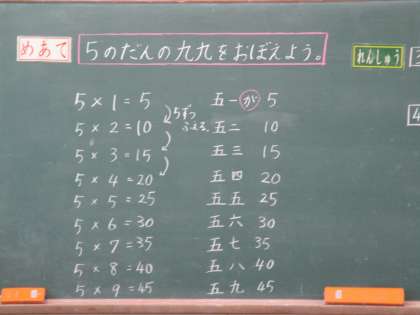 めあて
5のだんの九九をおぼえよう。
れんしゅう
5×1=5
5×2=10
5×3=15
5×4=20
5×5=25
5×6=30
5×7=35
5×8=40
5×9=45
5ずつ
ふえる。
五一が 5
五二 10
五三 15
五四 20
五五 25
五六 30
五七 35
五八 40
五九 45